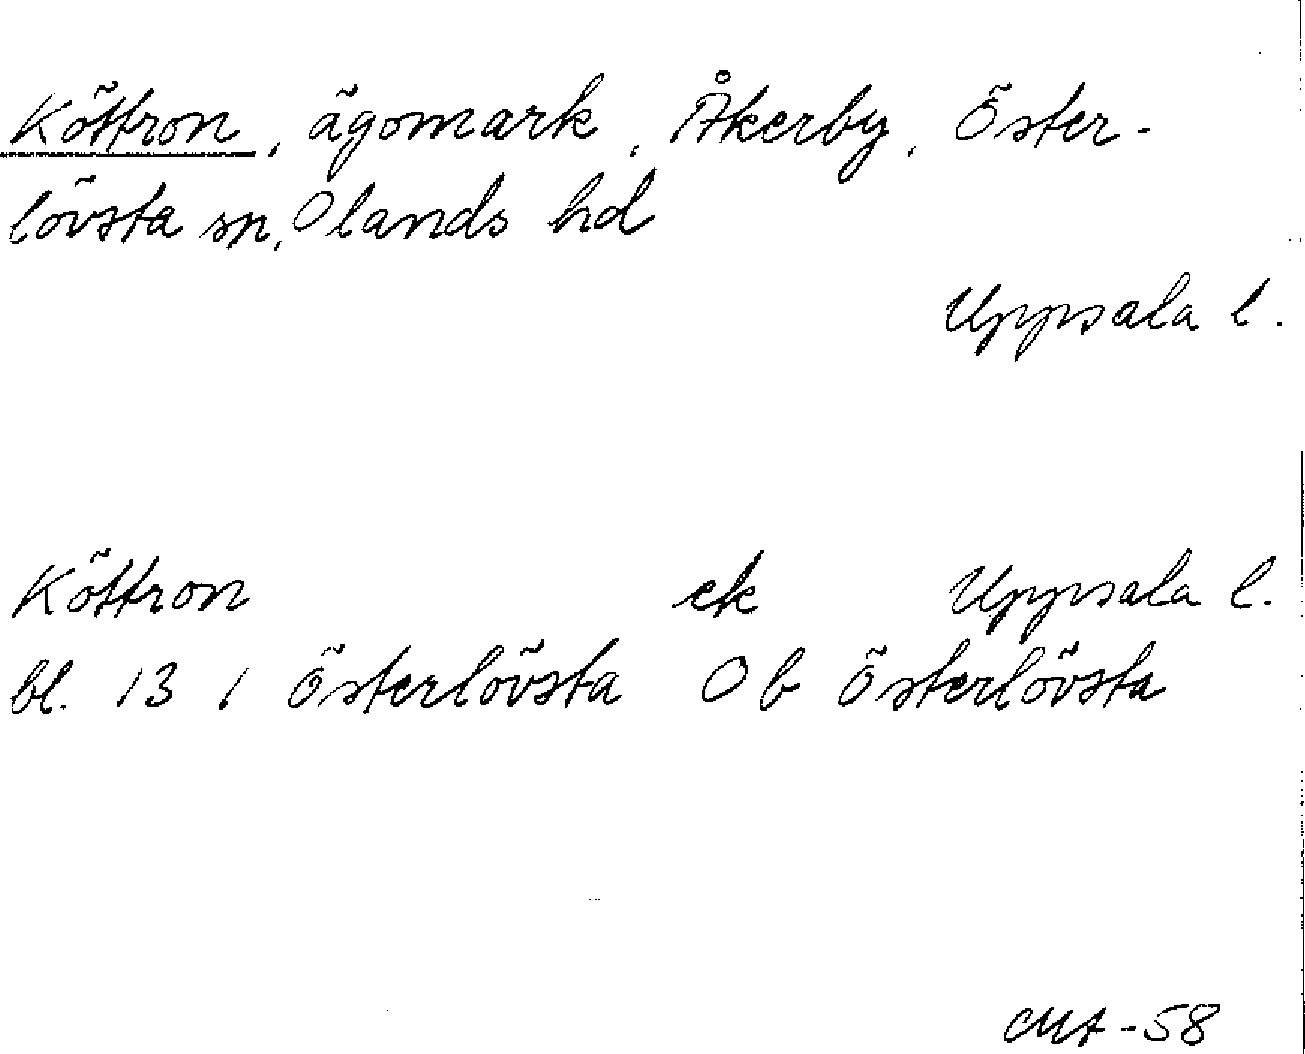 Köttron, ägomark, Åkerby, Öster-
lövsta sn, Olands hd
Uppsala l.
Köttron ek Uppsala l.
bl. 13 1 Österlövsta Ob Österlövsta
-58